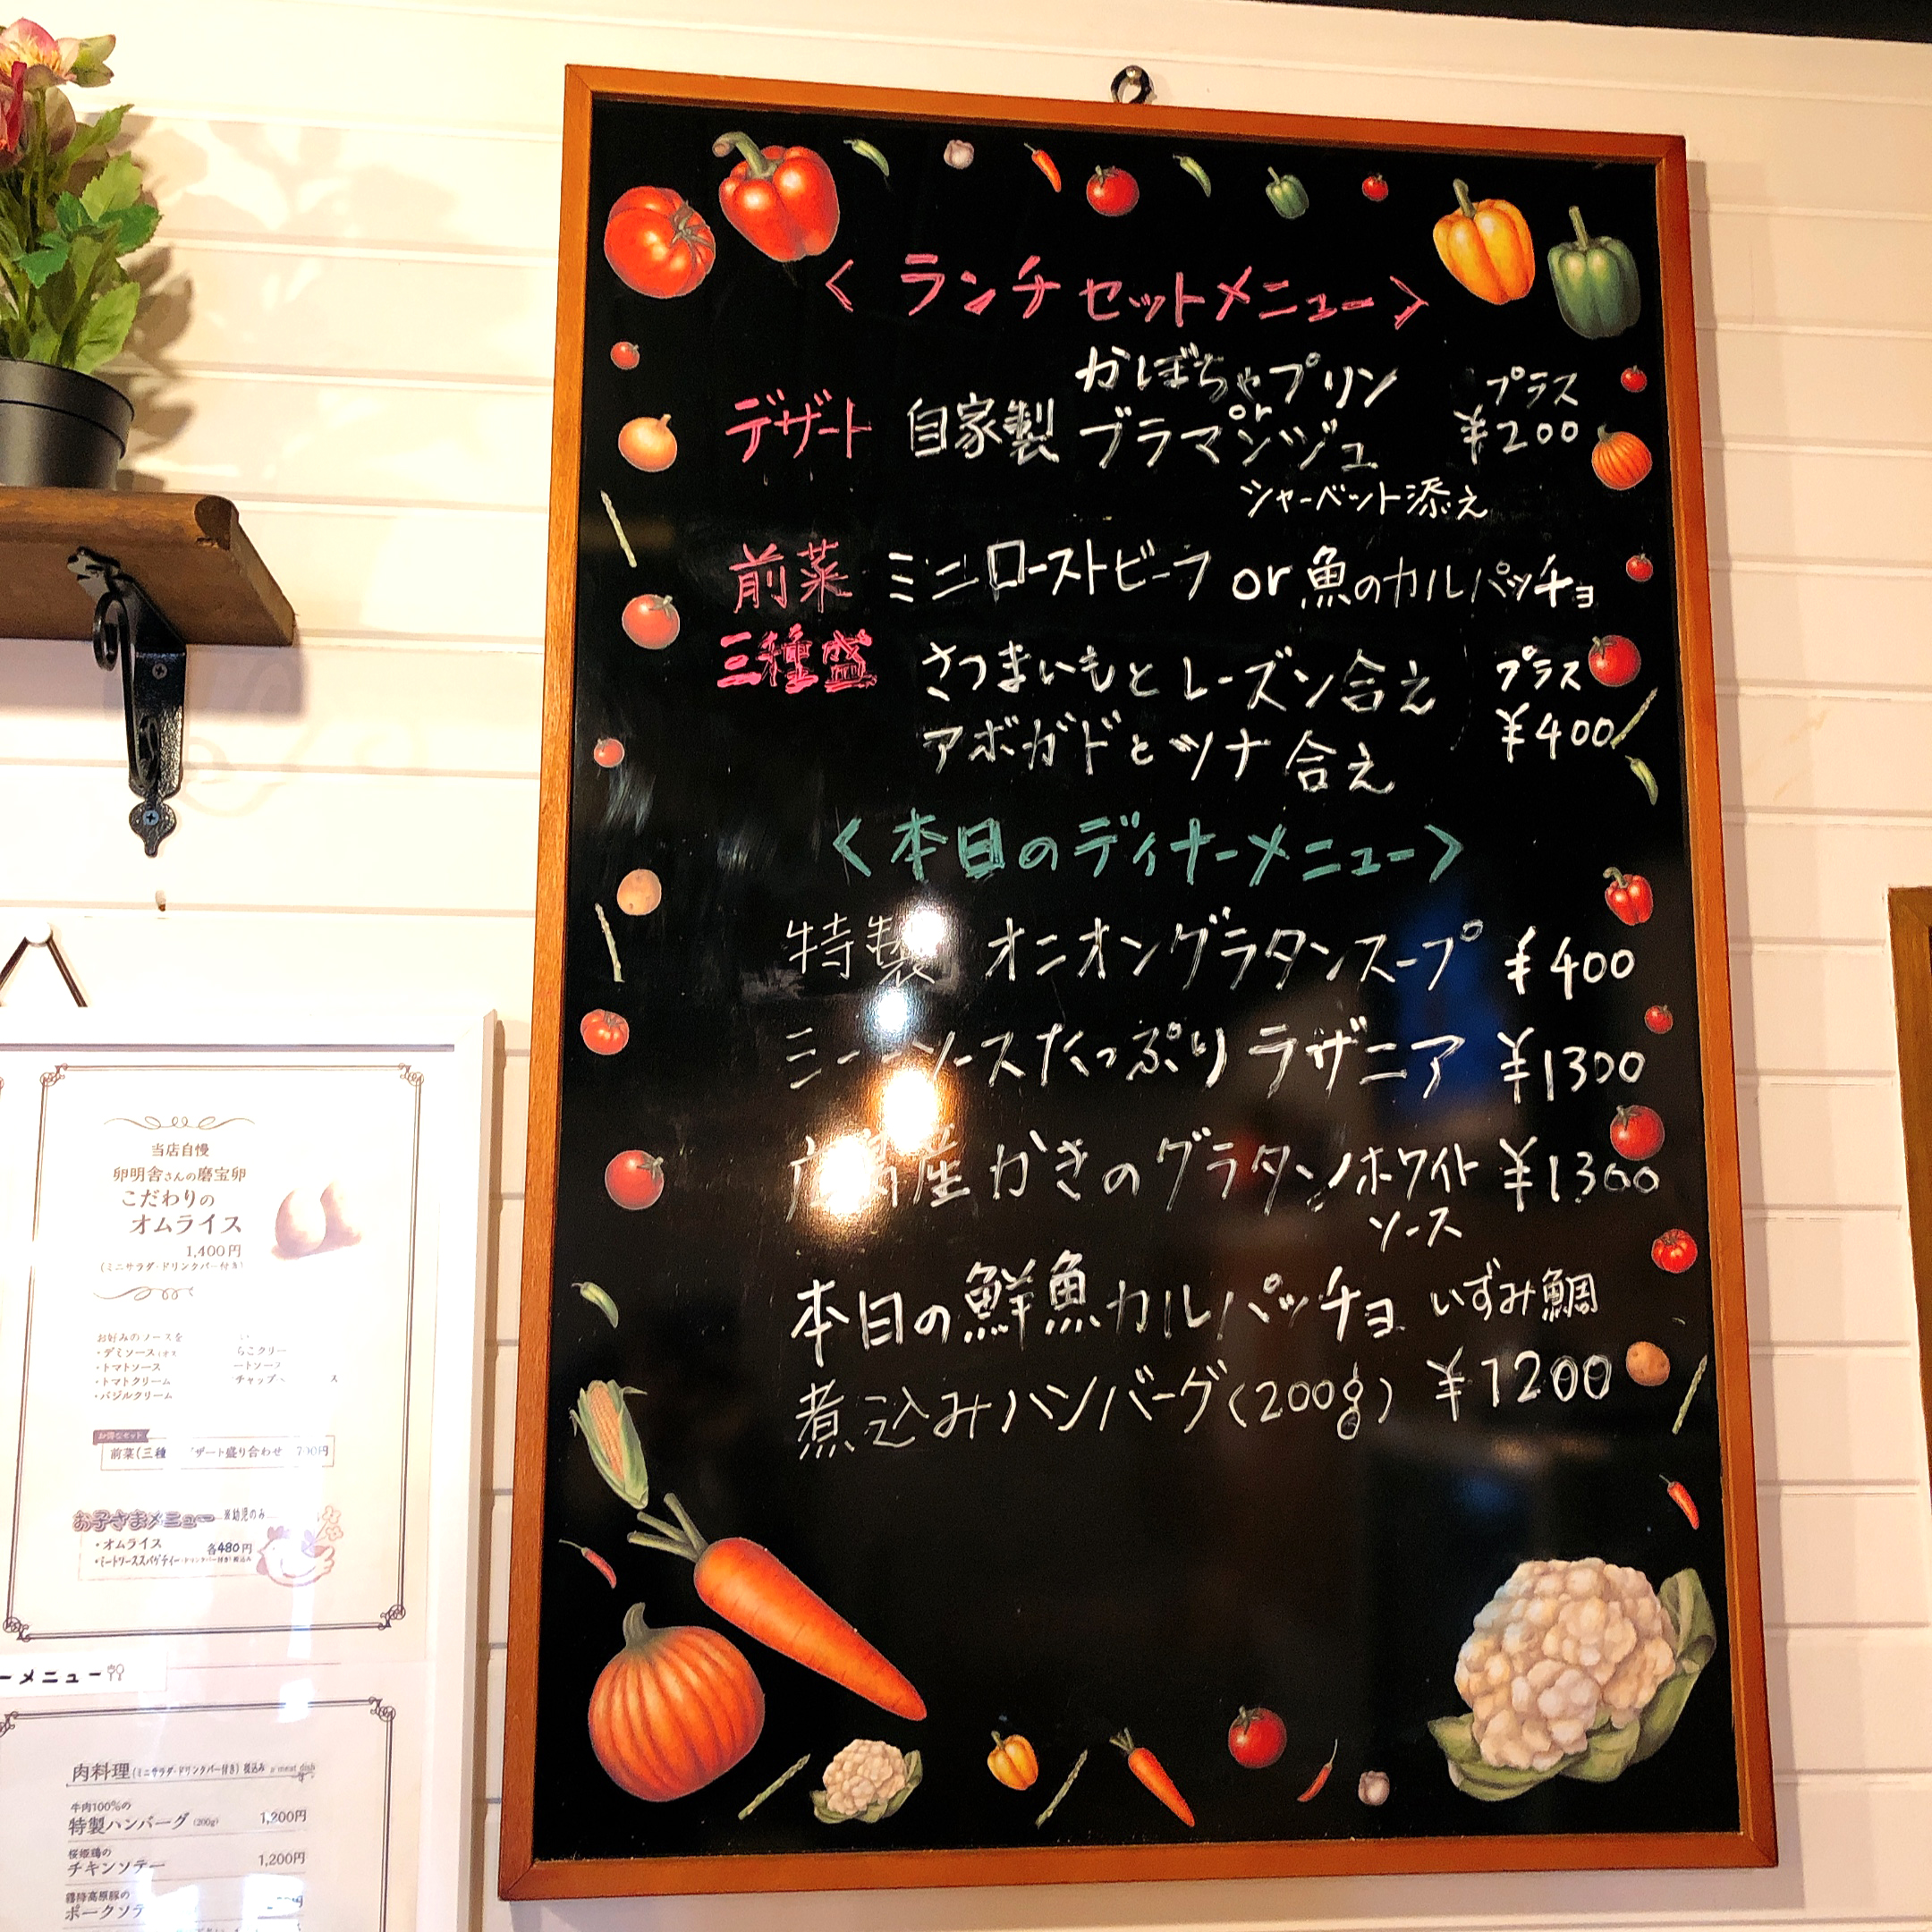 < ランチセットメニュー >
かぼちゃプリン
or
デザート 自家製 ブラマンジュ プラス ¥200
シャーベット添え
前菜 ミニローストビーフ or 魚のカルパッチョ
三種盛 さつまいもとレーズン合え プラス
アボガドとツナ合え ¥400
<本日のディナーメニュー>
特製 オニオングラタンスープ ¥400
ソースたっぷり ラザニア ¥1300
産 かきのグラタン ホワイト ¥1300
ソース
本日の鮮魚カルパッチョ いずみ鯛
煮込みハンバーグ(200g) ¥1200
当店自慢
卵明舎さんの磨宝卵
こだわりの
オムライス
1,400円
(ミニサラダ・ドリンクバー付き)
お好みのソースを
・デミソース
・トマトソース
・トマトクリーム
・バジルクリーム
お得なセット
前菜(三種 ザート盛り合わせ
お子さまメニュー ※幼児のみ
・オムライス 各480円
・ミートソーススパゲティー(ドリンクバー付き)税込み
ーメニュー
肉料理(ミニサラダ・ドリンクバー付き) 税込み a meat dish
牛肉100%の
特製ハンバーグ(200g) 1,200円
桜姫鶏の
チキンソテー 1,200円
霧降高原豚の
ポークソテ